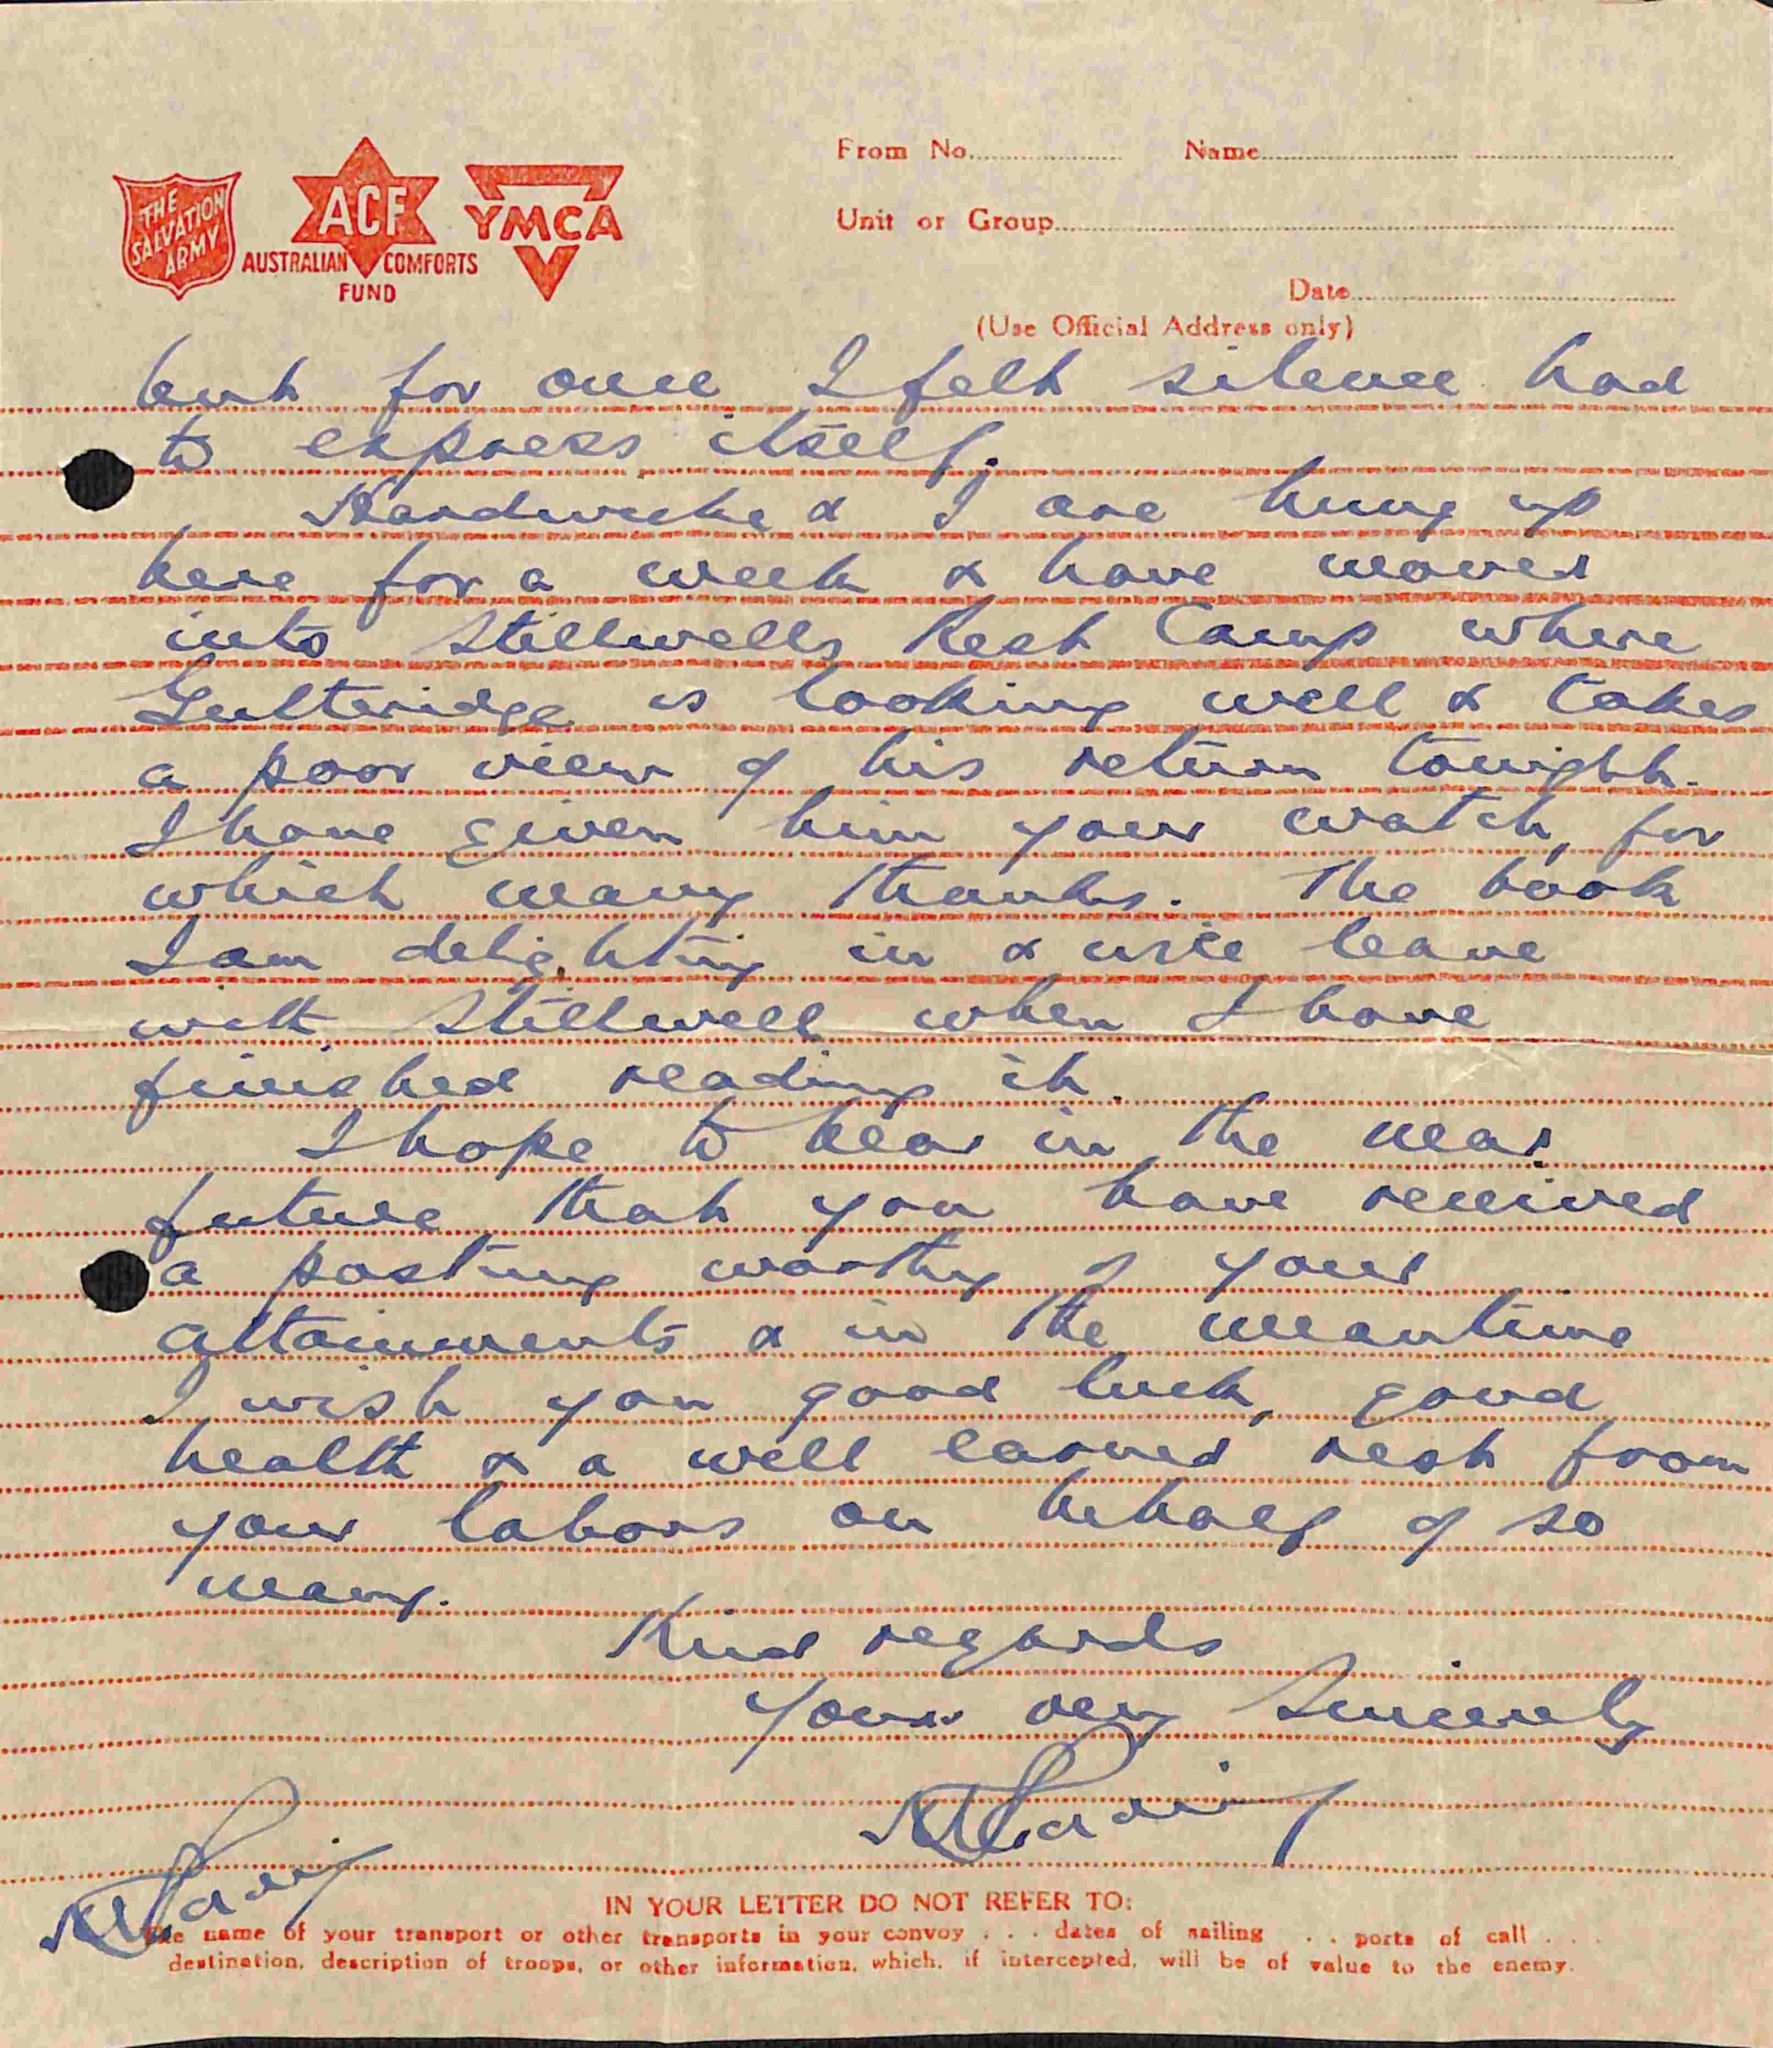 THE
SALVATION
ARMY
ACF
AUSTRALIAN COMFORTS
FUND
YMCA
From No. Name
Unit or Group
Date
(Use Official Address only)
but for once I felt silence had
to express itself.
Hardwicke & I are hung up
here for a week & have moved
into Stillwells Rest Camp where
Gutteridge is looking well & takes
a poor view of his return tonight.
I have given him your watch, for
which many thanks. The book
I am delighting in & will leave
with Stillwell when I have
finished reading it.
I hope to hear in the near
future that you have received
a posting worthy of your
attainments & in the meantime
I wish you good luck, good
health & a well earned rest from
your labors on behalf of so
many.
Kind regards
Yours very Sincerely
IN YOUR LETTER DO NOT REFER TO:
The name of your transport or other transports in your convoy . . . dates of sailing . . ports of call . . .
destination, description of troops, or other information, which, if intercepted, will be of value to the enemy.